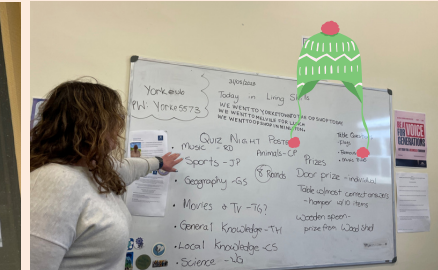 York@wb
PW: Yorke5573
Today in Living Skills
WE WENT TO YORKETOWN TO THE OP SHOP TODAY
WE WENT TO MELVILLE FOR LUNCH
QUIZ NIGHT POSTER
• Music - RD
Animals - CP
• Sports - JP
8 Rounds
• Geography - GS
• Movies & TV - TG?
• General Knowledge - TH
• Local Knowledge - CS
• Science - WG
Prizes
Door prize - individual
Table w/most correct answers
- hamper w/10 items
Wooden spoon -
prize from Wood Shed
VOICE
FOR
GENERATIONS